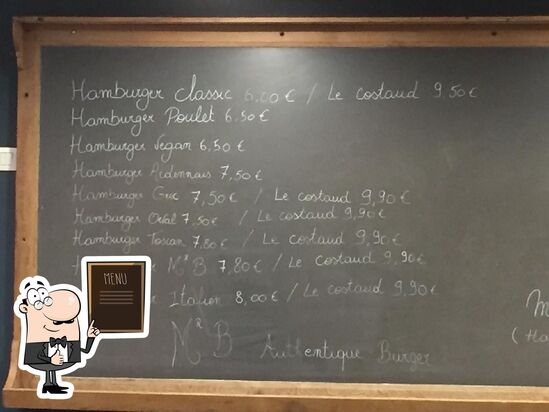 Hamburger Classic 6,00 € / Le costaud 9,50 €
Hamburger Poulet 6,50 €
Hamburger Vegan 6,50 €
Hamburger Ardennais 7,50 €
Hamburger Grec 7,50 € / Le costaud 9,90 €
Hamburger Orval 7,50 € / Le costaud 9,90 €
Hamburger Toscan 7,80 € / Le costaud 9,90 €
H MR B 7,80 € / Le costaud 9,90 €
Italien 8,00 € / Le costaud 9,90 €
MR B Authentique Burger
M
(Ha
MENU